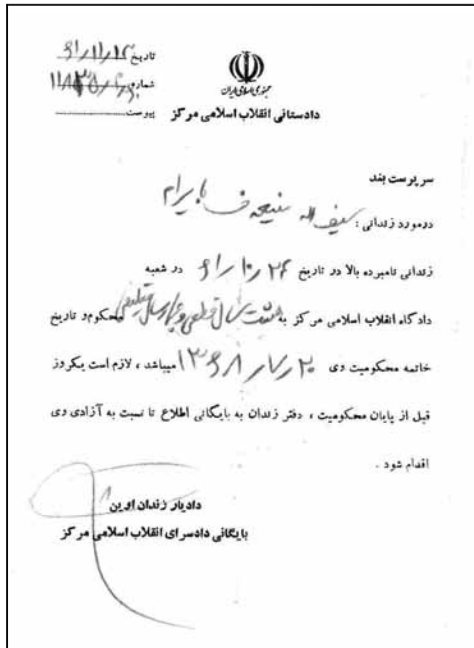 تاریخ ۶۱/۱۱/۱۲
شماره
پیوست
جمهوری اسلامی ایران
دادستانی انقلاب اسلامی مرکز
سرپرست بند
در مورد زندانی : سیف اله منیعه ف بایرام
زندانی نامبرده بالا در تاریخ ۶۱/۱۰/۲۶ در شعبه
دادگاه انقلاب اسلامی مرکز به هشت سال قطعی و چهار سال تعلیقی محکوم و تاریخ
خاتمه محکومیت وی ۱۳۶۸/۷/۲۰ میباشد ، لازم است یکروز
قبل از پایان محکومیت ، دفتر زندان به بایگانی اطلاع تا نسبت به آزادی وی
اقدام شود .
دادیار زندان اوین
بایگانی دادسرای انقلاب اسلامی مرکز